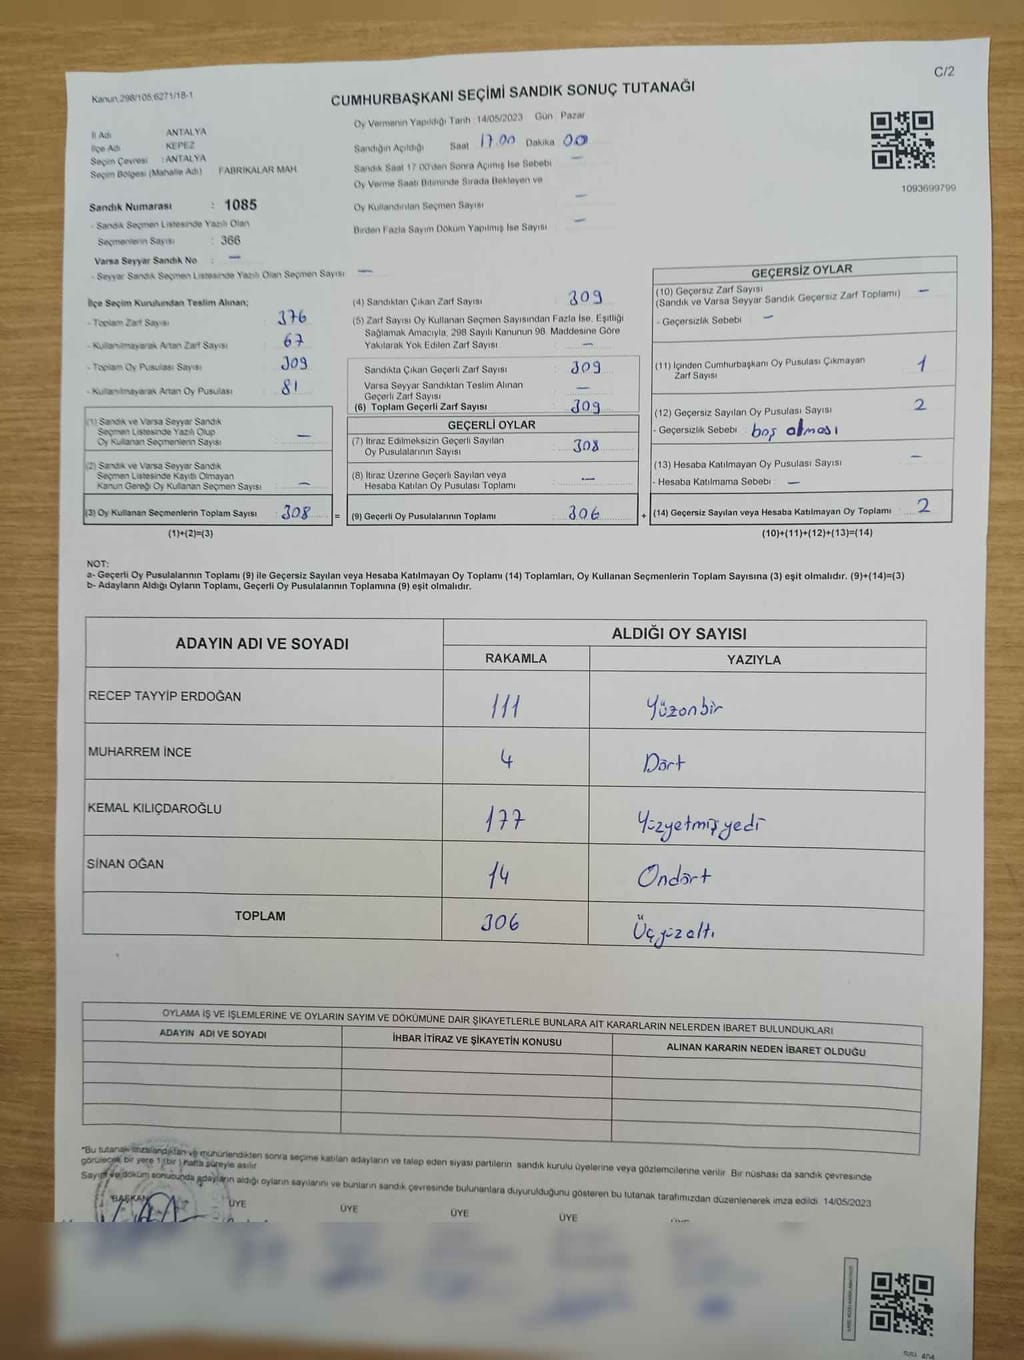 C/2
Kanun 298/105,6271/18-1
CUMHURBAŞKANI SEÇİMİ SANDIK SONUÇ TUTANAĞI
İl Adı ANTALYA
İlçe Adı KEPEZ
Seçim Çevresi : ANTALYA
Seçim Bölgesi (Mahalle Adı) FABRİKALAR MAH
Sandık Numarası : 1085
- Sandık Seçmen Listesinde Yazılı Olan
Seçmenlerin Sayısı : 366
Varsa Seyyar Sandık No : —
- Seyyar Sandık Seçmen Listesinde Yazılı Olan Seçmen Sayısı —
Oy Vermenin Yapıldığı Tarih : 14/05/2023 Gün : Pazar
Sandığın Açıldığı Saat 17.00 Dakika 00
Sandık Saat 17:00'den Sonra Açılmış İse Sebebi —
Oy Verme Saati Bitiminde Sırada Bekleyen ve
Oy Kullandırılan Seçmen Sayısı —
Birden Fazla Sayım Döküm Yapılmış İse Sayısı —
1093699799
İlçe Seçim Kurulundan Teslim Alınan;
- Toplam Zarf Sayısı 376
- Kullanılmayarak Artan Zarf Sayısı 67
- Toplam Oy Pusulası Sayısı 309
- Kullanılmayarak Artan Oy Pusulası 81
(1) Sandık ve Varsa Seyyar Sandık
Seçmen Listesinde Yazılı Olup
Oy Kullanan Seçmenlerin Sayısı —
(2) Sandık ve Varsa Seyyar Sandık
Seçmen Listesinde Kayıtlı Olmayan
Kanun Gereği Oy Kullanan Seçmen Sayısı —
(3) Oy Kullanan Seçmenlerin Toplam Sayısı 308 =
(1)+(2)=(3)
(4) Sandıktan Çıkan Zarf Sayısı 309
(5) Zarf Sayısı Oy Kullanan Seçmen Sayısından Fazla İse, Eşitliği
Sağlamak Amacıyla, 298 Sayılı Kanunun 98. Maddesine Göre
Yakılarak Yok Edilen Zarf Sayısı —
Sandıkta Çıkan Geçerli Zarf Sayısı 309
Varsa Seyyar Sandıktan Teslim Alınan
Geçerli Zarf Sayısı —
(6) Toplam Geçerli Zarf Sayısı 309
GEÇERLİ OYLAR
(7) İtiraz Edilmeksizin Geçerli Sayılan
Oy Pusulalarının Sayısı 308
(8) İtiraz Üzerine Geçerli Sayılan veya
Hesaba Katılan Oy Pusulası Toplamı —
(9) Geçerli Oy Pusulalarının Toplamı 306 +
GEÇERSİZ OYLAR
(10) Geçersiz Zarf Sayısı
(Sandık ve Varsa Seyyar Sandık Geçersiz Zarf Toplamı) —
- Geçersizlik Sebebi —
(11) İçinden Cumhurbaşkanı Oy Pusulası Çıkmayan
Zarf Sayısı 1
(12) Geçersiz Sayılan Oy Pusulası Sayısı 2
- Geçersizlik Sebebi boş olması
(13) Hesaba Katılmayan Oy Pusulası Sayısı —
- Hesaba Katılmama Sebebi —
(14) Geçersiz Sayılan veya Hesaba Katılmayan Oy Toplamı 2
(10)+(11)+(12)+(13)=(14)
NOT:
a- Geçerli Oy Pusulalarının Toplamı (9) ile Geçersiz Sayılan veya Hesaba Katılmayan Oy Toplamı (14) Toplamları, Oy Kullanan Seçmenlerin Toplam Sayısına (3) eşit olmalıdır. (9)+(14)=(3)
b- Adayların Aldığı Oyların Toplamı, Geçerli Oy Pusulalarının Toplamına (9) eşit olmalıdır.
ADAYIN ADI VE SOYADI ALDIĞI OY SAYISI
RAKAMLA YAZIYLA
RECEP TAYYİP ERDOĞAN 111 Yüzonbir
MUHARREM İNCE 4 Dört
KEMAL KILIÇDAROĞLU 177 Yüzyetmişyedi
SİNAN OĞAN 14 Ondört
TOPLAM 306 Üçyüzaltı
OYLAMA İŞ VE İŞLEMLERİNE VE OYLARIN SAYIM VE DÖKÜMÜNE DAİR ŞİKAYETLERLE BUNLARA AİT KARARLARIN NELERDEN İBARET BULUNDUKLARI
ADAYIN ADI VE SOYADI İHBAR İTİRAZ VE ŞİKAYETİN KONUSU ALINAN KARARIN NEDEN İBARET OLDUĞU
"Bu tutanak imzalandıktan ve mühürlendikten sonra seçime katılan adayların ve talep eden siyasi partilerin sandık kurulu üyelerine veya gözlemcilerine verilir. Bir nüshası da sandık çevresinde
görülecek bir yere 1 (bir) hafta süreyle asılır.
Sayım ve döküm sonucunda adayların aldığı oyların sayılarını ve bunların sandık çevresinde bulunanlara duyurulduğunu gösteren bu tutanak tarafımızdan düzenlenerek imza edildi. 14/05/2023
BAŞKAN ÜYE ÜYE ÜYE ÜYE